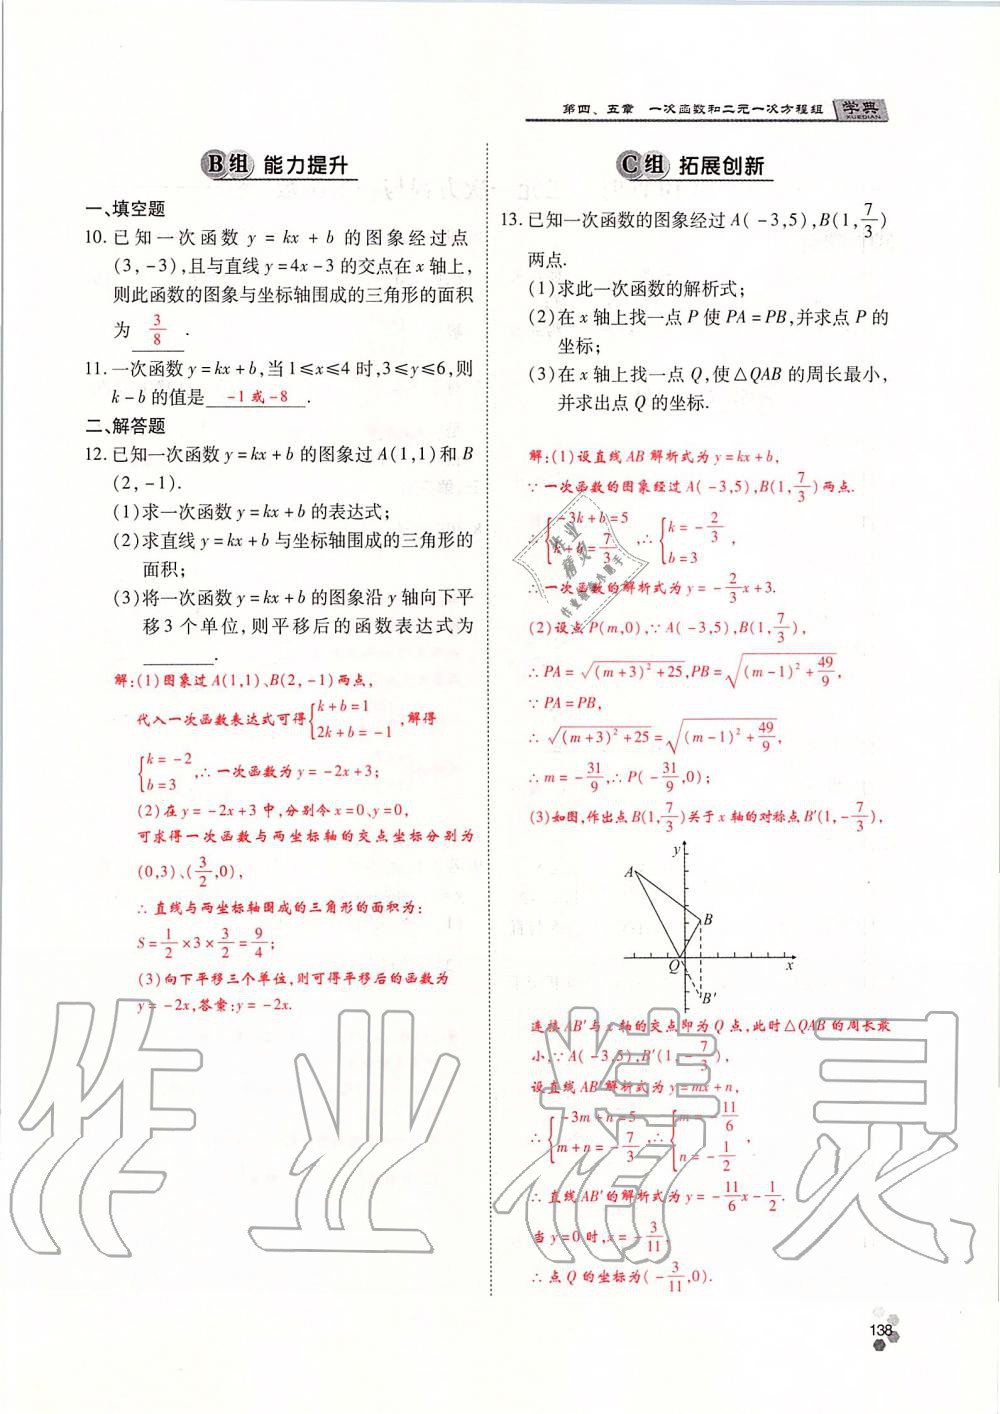 第四、五章 一次函数和二元一次方程组 学典
XUEDIAN
B组 能力提升
一、填空题
10. 已知一次函数 y = kx + b 的图象经过点
(3, -3),且与直线 y=4x-3 的交点在 x 轴上,
则此函数的图象与坐标轴围成的三角形的面积
为 3/8 .
11. 一次函数 y=kx+b,当 1≤x≤4 时,3≤y≤6,则
k-b 的值是 -1 或 -8 .
二、解答题
12. 已知一次函数 y=kx+b 的图象过 A(1,1)和 B
(2, -1).
(1)求一次函数 y=kx+b 的表达式;
(2)求直线 y=kx+b 与坐标轴围成的三角形的
面积;
(3)将一次函数 y=kx+b 的图象沿 y 轴向下平
移 3 个单位,则平移后的函数表达式为
________.
解:(1)图象过 A(1,1)、B(2, -1)两点,
代入一次函数表达式可得{k+b=1 2k+b=-1 ,解得
{k=-2 b=3 ,∴ 一次函数为 y=-2x+3;
(2)在 y=-2x+3 中,分别令 x=0、y=0,
可求得一次函数与两坐标轴的交点坐标分别为
(0,3)、(3/2,0),
∴ 直线与两坐标轴围成的三角形的面积为:
S=1/2×3×3/2=9/4;
(3)向下平移三个单位,则可得平移后的函数为
y=-2x,答案:y=-2x.
C组 拓展创新
13. 已知一次函数的图象经过 A(-3,5),B(1,7/3)
两点.
(1)求此一次函数的解析式;
(2)在 x 轴上找一点 P 使 PA=PB,并求点 P 的
坐标;
(3)在 x 轴上找一点 Q,使△QAB 的周长最小,
并求出点 Q 的坐标.
解:(1)设直线 AB 解析式为 y=kx+b,
∵ 一次函数的图象经过 A(-3,5),B(1,7/3)两点.
∴ {-3k+b=5 k+b=7/3 ,∴ {k=-2/3 b=3 ,
∴ 一次函数的解析式为 y=-2/3x+3.
(2)设点 P(m,0),∵ A(-3,5),B(1,7/3),
∴ PA=√((m+3)²+25),PB=√((m-1)²+49/9),
∵ PA=PB,
∴ √((m+3)²+25)=√((m-1)²+49/9),
∴ m=-31/9,∴ P(-31/9,0);
(3)如图,作出点 B(1,7/3)关于 x 轴的对称点 B′(1,-7/3),
y
A
B
Q
x
B′
连接 AB′与 x 轴的交点即为 Q 点,此时△QAB 的周长最
小,∵ A(-3,5),B′(1,-7/3),
设直线 AB′解析式为 y=mx+n,
∴ {-3m+n=5 m+n=-7/3 ,∴ {m=-11/6 n=-1/2 ,
∴ 直线 AB′的解析式为 y=-11/6x-1/2.
当 y=0 时,x=-3/11,
∴ 点 Q 的坐标为(-3/11,0).
138
作业精灵